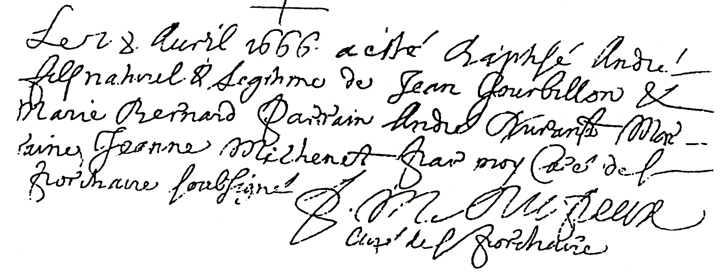 Le 8 Avril 1666 a esté Baptisé André
fils naturel & Legitime de Jean Gourbillon &
Marie Bernard Parrain André Durant Mar-
raine Jeanne Michenet par moy Curé de S
Porchaire soubsigné
P. M.
Curé de S Porchaire